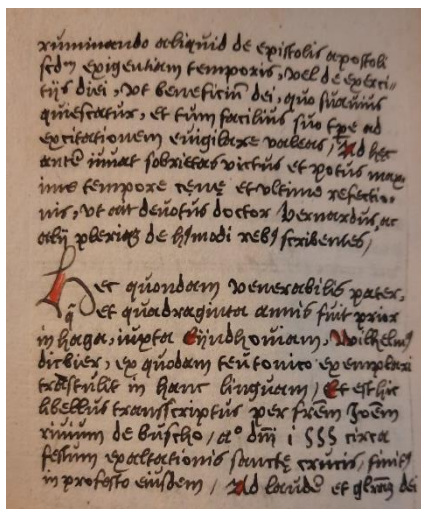 ruminando aliquid de epistolis apostoli
scdm exigentiam temporis, vel de exerci-
tijs diei, vt beneficiu dei, quo suauius
quiescatur, et tum facilius suo tpe ad
excitationem euigilare valeas, Ad hec
aute iuuat sobrietas victus et potus max
ime tempore cenę et vltime refectio-
nis, vt ait deuotus doctor bernardus, ac
alij pleriq de hmodi reb scribentes,
Hec quondam venerabilis pater,
q et quadraginta annis fuit prior
in haga, iuxta Eijndhouiam, Wilhelm
dicbier, ex quodam teutonico exemplari
trastulit in hanc linguam, Et est hic
libellus transscriptus per frem Joem
riuium de buscho, ao dmi 1555 circa
festum exaltationis sanctę crucis, finit
in profesto eiusdem, Ad laude et glriam dei